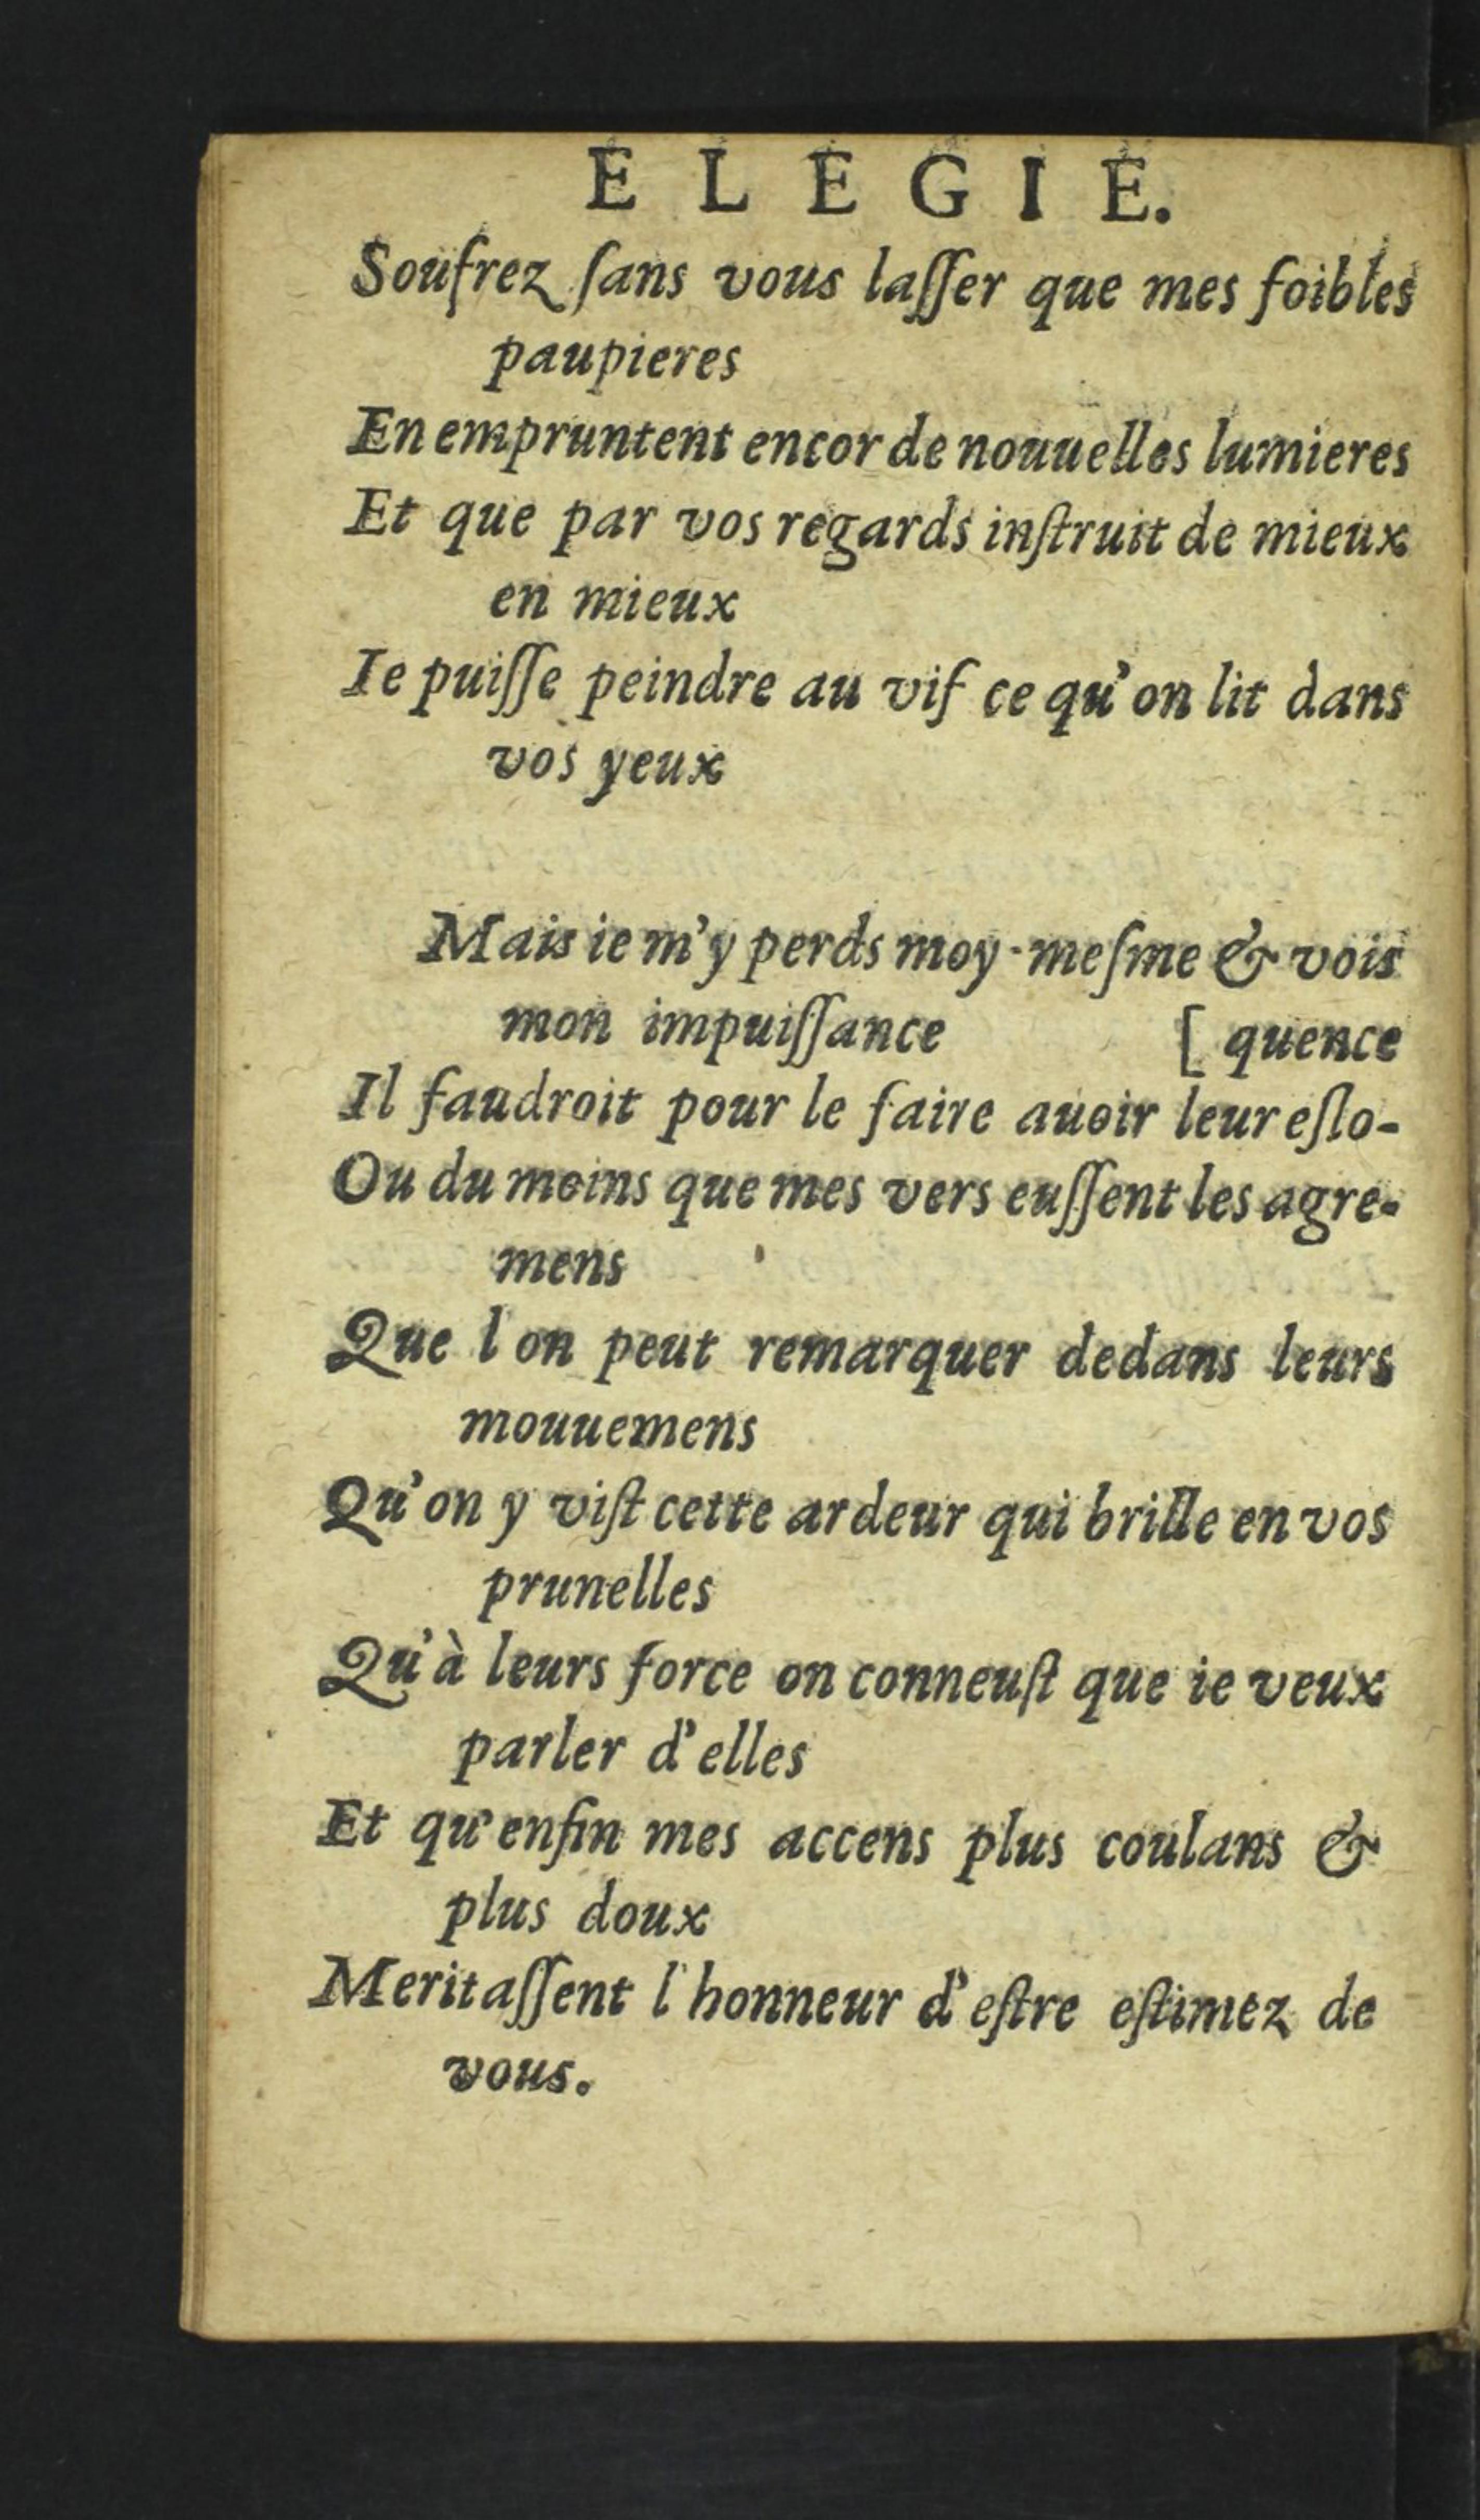 ELEGIE.
Soufrez ſans vous laſſer que mes foibles
paupieres
En empruntent encor de nouuelles lumieres
Et que par vos regards inſtruit de mieux
en mieux
Ie puiſſe peindre au vif ce qu'on lit dans
vos yeux
Mais ie m'y perds moy-meſme & vois
mon impuiſſance [ quence
Il faudroit pour le faire auoir leur eſlo-
Ou du moins que mes vers euſſent les agre-
mens
Que l on peut remarquer dedans leurs
mouuemens
Qu'on y viſt cette ardeur qui brille en vos
prunelles
Qu'à leurs force on conneuſt que ie veux
parler d'elles
Et qu'enfin mes accens plus coulans &
plus doux
Meritaſſent l'honneur d'eſtre eſtimez de
vous.